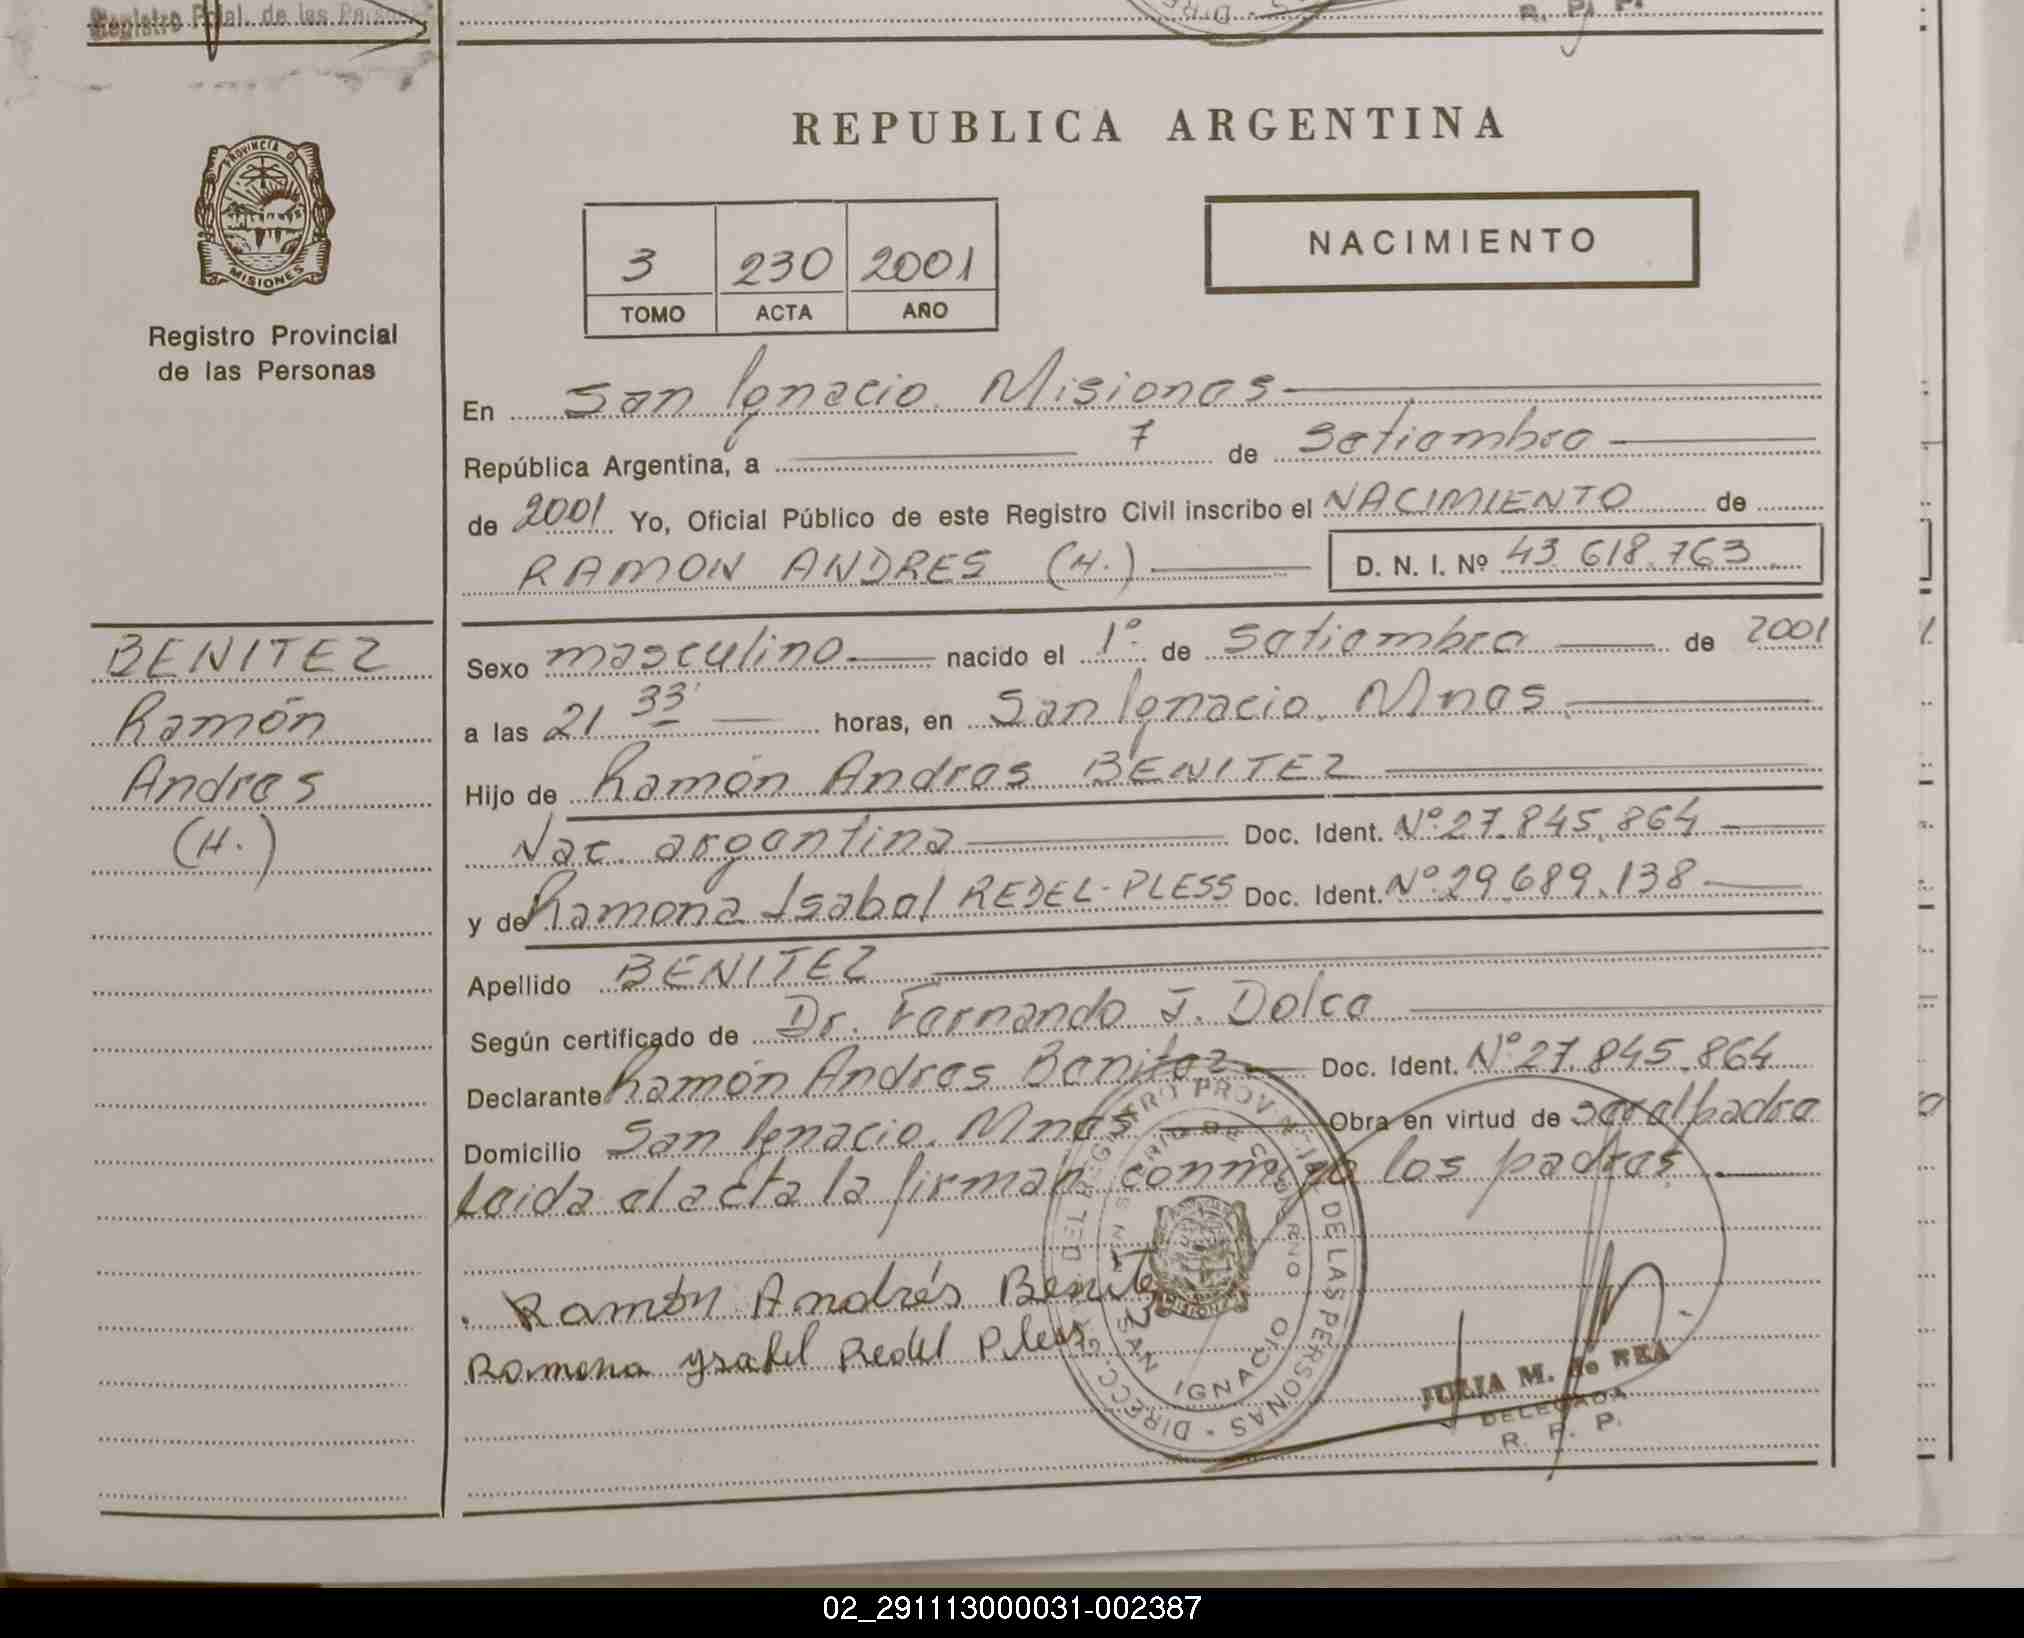 Registro Pcial. de las Personas
R. P. P.
REPUBLICA ARGENTINA
PROVINCIA DE
MISIONES
Registro Provincial
de las Personas
3 230 2001
TOMO ACTA AÑO
NACIMIENTO
En San Ignacio. Misiones
República Argentina, a 7 de Setiembre
de 2001 Yo, Oficial Público de este Registro Civil inscribo el NACIMIENTO de
RAMON ANDRES (H.) D. N. I. Nº 43.618.763
BENITEZ
Ramón
Andres
(H.)
Sexo masculino nacido el 1º de Setiembre de 2001
a las 21 33 horas, en San Ignacio. Mnes.
Hijo de Ramón Andres BENITEZ
Nac. argentina Doc. Ident. Nº 27.845.864
y de Ramona Isabel REDEL-PLESS Doc. Ident. Nº 29.689.138
Apellido BENITEZ
Según certificado de Dr. Fernando J. Dolce
Declarante Ramón Andres Benitez Doc. Ident. Nº 27.845.864
Domicilio San Ignacio. Mnes Obra en virtud de ser el padre
Leida el acta la firman conmigo los padres.
Ramón Andrés Benitez
Ramona ysabel Redel Pless
DIRECC. GRAL. DEL REGISTRO PROVINCIAL DE LAS PERSONAS
SAN IGNACIO
MISIONES
JULIA M. de REA
DELEGADA
R. P. P.
02_291113000031-002387